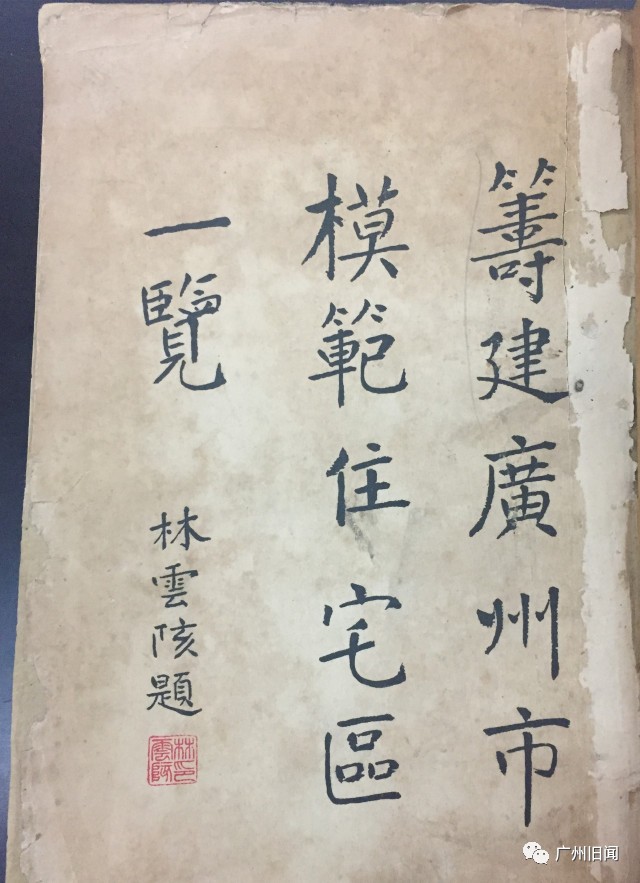 籌建廣州市
模範住宅區
一覽
林雲陔題
林雲陔印
广州旧闻